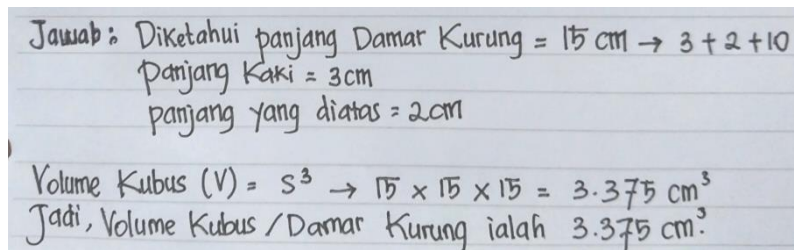 Jawab : Diketahui panjang Damar Kurung = 15 cm → 3 + 2 + 10
panjang Kaki = 3cm
panjang yang diatas = 2cm
Volume Kubus (V) = S³ → 15 × 15 × 15 = 3.375 cm³
Jadi, Volume Kubus / Damar Kurung ialah 3.375 cm³.